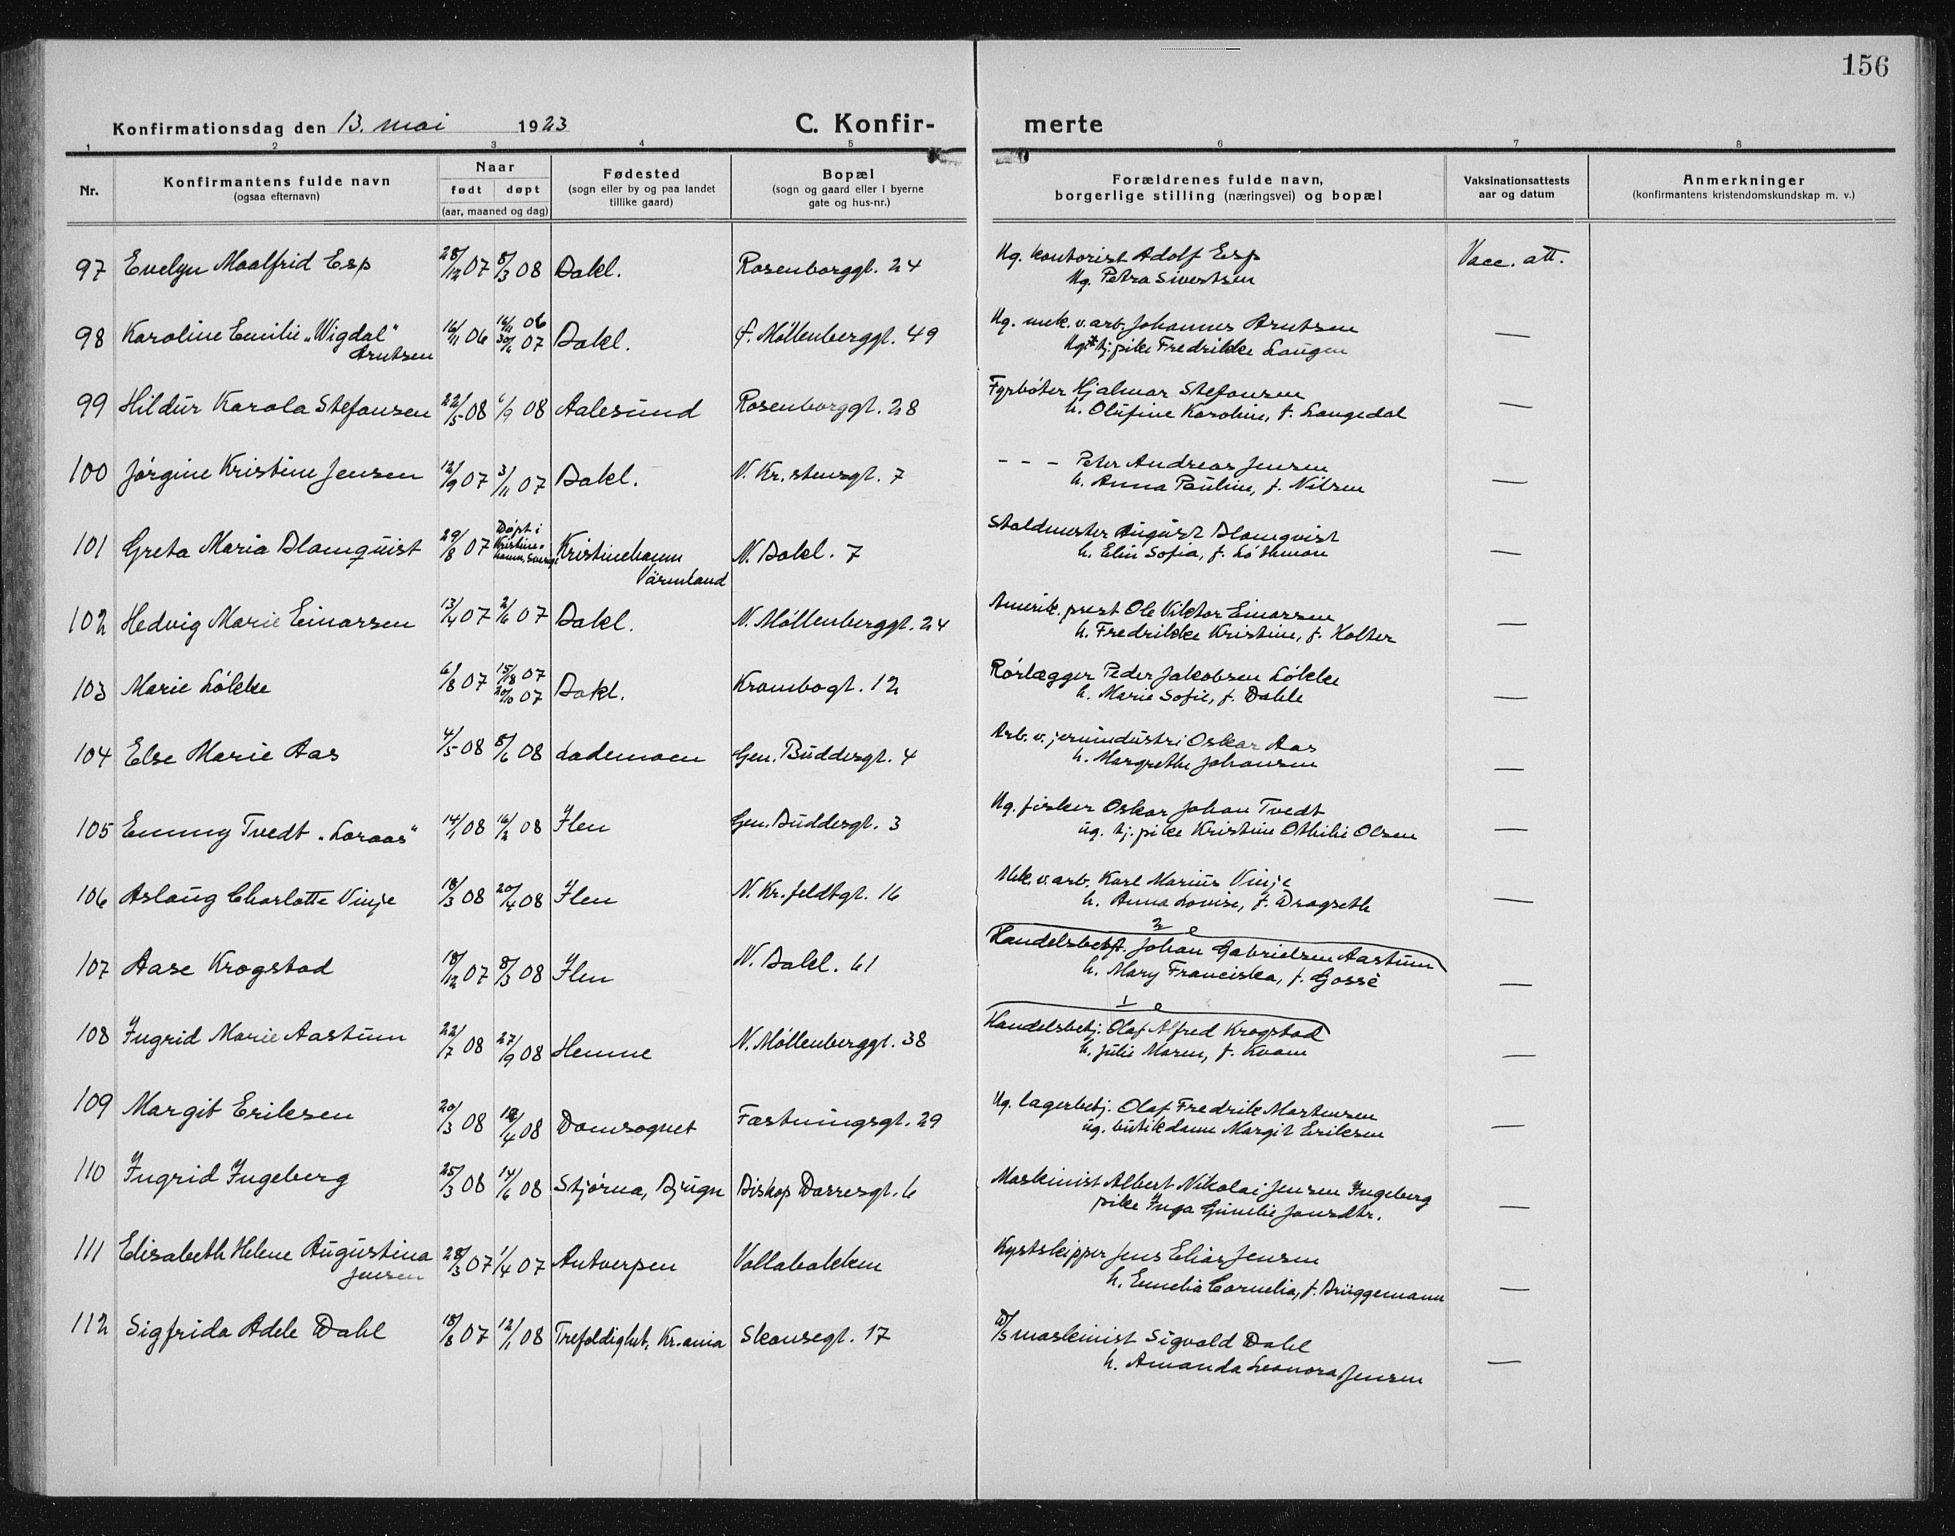 156
Konfirmationsdag den 13. mai 1923 C. Konfir- merte
1 2 3 4 5 6 7 8
Nr.
Konfirmantens fulde navn
(ogsaa efternavn)
Naar
født døpt
(aar, maaned og dag)
Fødested
(sogn eller by og paa landet
tillike gaard)
Bopæl
(sogn og gaard eller i byerne
gate og hus-nr.)
Forældrenes fulde navn,
borgerlige stilling (næringsvei) og bopæl
Vaksinationsattests
aar og datum
Anmerkninger
(konfirmantens kristendomskundskap m. v.)
97 Evelyn Maalfrid Esp 28/12 07 8/3 08 Bakl. Rosenborggt. 24 Ug. kontorist Adolf Esp Vacc. att.
Ug. Petra Sivertsen
98 Karoline Emilie „Wigdal" 16/11 06 16/11 06 Bakl. f. Møllenberggt. 49 Ug. mek. v. arb. Johannes Arntsen —
Arntsen 07 tj. pike Fredrikke Haugen
99 Hildur Karola Stefansen 22/5 08 6/9 08 Aalesund Rosenborggt. 28 Fyrbøter Hjalmar Stefansen —
h. Olufine Karoline, f. Langedal
100 Jørgine Kristine Jensen 12/9 07 3/11 07 Bakl. N. Kr.stensgt. 7 - - - Peter Andreas Jensen —
h. Anna Pauline, f. Nilsen
101 Greta Maria Blomquist 29/8 07 Døpt i Kristinehamn, Sverige Kristinehamn N. Bakl. 7 Staldmester August Blomqvist —
Värmland h. Elin Sofia, f. Löthman
102 Hedvig Marie Einarsen 13/4 07 2/6 07 Bakl. N. Møllenberggt. 24 Amerik. prest Ole Viktor Einarsen —
h. Fredrikke Kristine, f. Holter
103 Marie Løkke 6/8 07 15/8 07 Bakl. Krambogt. 12 Rørlægger Peder Jakobsen Løkke —
20/10 07 h. Marie Sofie, f. Dahle
104 Else Marie Aas 4/5 08 8/6 08 Lademoen Gen. Buddesgt. 4 Arb. v. jernindustri Oskar Aas —
h. Margrethe Johansen
105 Emmy Tvedt „Loraas" 14/1 08 16/2 08 Ilen Gen. Buddesgt. 3 Ug. fisker Oskar Johan Tvedt —
ug. tj. pike Kristine Othilie Olsen
106 Aslaug Charlotte Vinje 18/3 08 20/4 08 Ilen N. Kr.feldtgt. 16 Mek. v. arb. Karl Marius Vinje —
h. Anna Lovise, f. Dragseth
107 Aase Krogstad 18/12 07 8/3 08 Ilen N. Bakl. 61 2 Handelsbetj. Johan Gabrielsen Aastum —
h. Mary Franciska, f. Gossè
108 Ingrid Marie Aastum 22/7 08 27/9 08 Hemne N. Møllenberggt. 38 1 Handelsbetj. Olaf Alfred Krogstad —
h. Julie Maren, f. Kvam
109 Margit Eriksen 20/3 08 4 08 Domsognet Fæstningsgt. 29 Ug. lagerbetj. Olaf Fredrik Martensen —
ug. butikdame Margit Eriksen
110 Ingrid Ingeberg 25/3 08 14/6 08 Stjørna, Bjugn Biskop Darresgt. 6 Maskinist Albert Nikolai Jensen Ingeberg —
pike Inga Gunelie Jonsdtr.
111 Elisabeth Helene Augustina 28/3 07 1/4 07 Antverpen Vollabakken Kystskipper Jens Elias Jensen —
Jensen h. Emelia Cornelia, f. Brüggemann
112 Sigfrida Adele Dahl 18/8 07 12/1 08 Trefoldighet, Kr.ania Skansegt. 17 D/S maskinist Sigvald Dahl —
h. Amanda Leonora Jensen